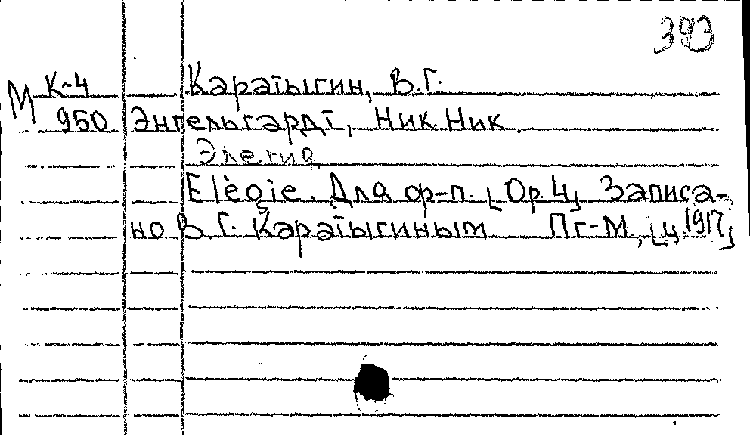 393
М К-4 Каратыгин, В.Г.
950 Энгельгардт, Ник Ник
Элегия
Elégie. Для ф-п. [Op 4] Записа-
но В Г. Каратыгиным Пг-М, [ц. 1917]